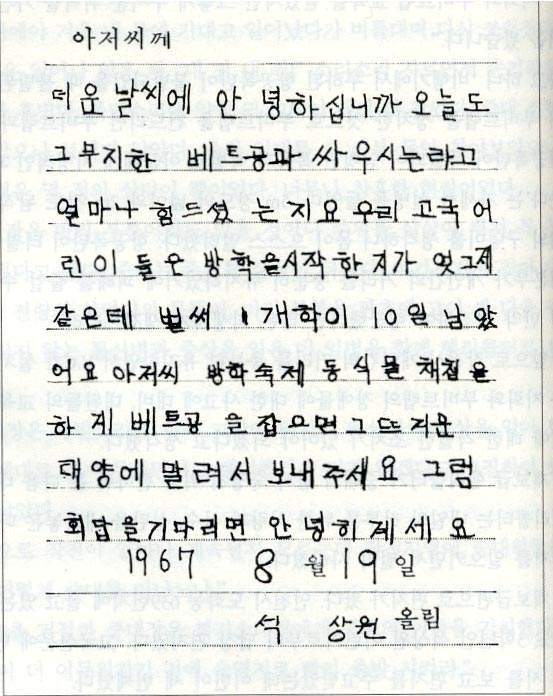 아저씨께
더운 날씨에 안녕하십니까 오늘도
그무지한 베트공과 싸우시는라고
얼마나 힘드셨는지요 우리 고국 어
린이들은 방학을시작한지가 엊그제
같은데 벌써 개학이 10일 남았
어요 아저씨 방학숙제 동식물 채집을
하게 베트공을 잡으면 그 뜨거운
태양에 말려서 보내주세요 그럼
회답을기다리면 안녕히계세요
1967 8월 19일
석 상원 올림